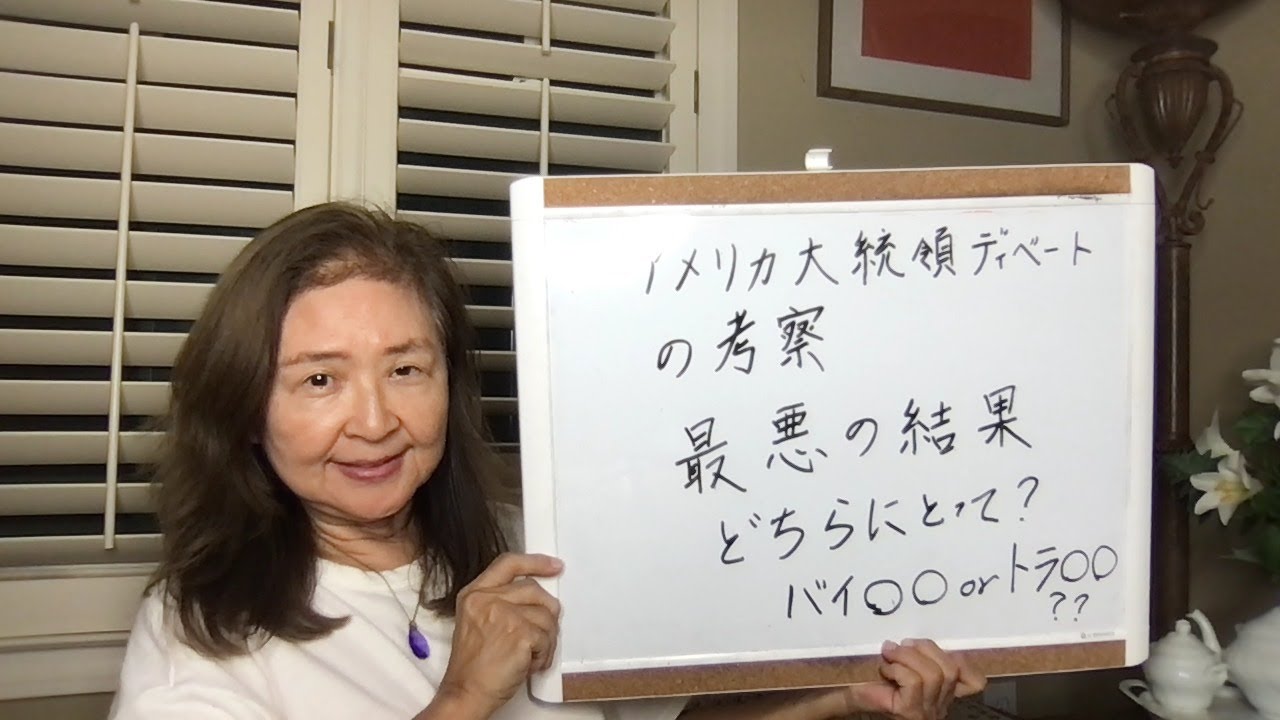 アメリカ大統領ディベート
の考察
最悪の結果
どちらにとって?
バイ〇〇orトラ〇〇
??